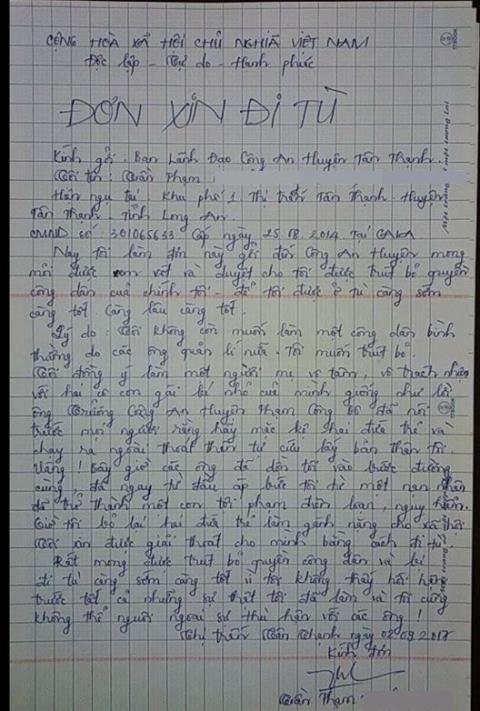 CỘNG HOÀ XÃ HỘI CHỦ NGHĨA VIỆT NAM
Độc lập - Tự do - Hạnh phúc
ĐƠN XIN ĐI TÙ
Kính gởi : Ban Lãnh Đạo Công An Huyện Tân Thạnh.
Tôi tên : Trần Thạm :
Hiện ngụ tại Khu phố 1 Thị trấn Tân Thạnh Huyện
Tân Thạnh - Tỉnh Long An.
CMND số : 301065633 Cấp ngày 25.08.2014 Tại CALA
Nay tôi làm đơn này gởi đến Công An Huyện mong
mỏi được xem xét và duyệt cho tôi được trút bỏ quyền
công dân của chính tôi - để tôi được ở tù càng sớm
càng tốt Càng lâu càng tốt.
Lý do : Tôi không còn muốn làm một công dân bình
thường do các ông quản lí nữa. Tôi muốn trút bỏ.
Tôi đồng ý làm một người mẹ vô tâm, vô trách nhiệm
với hai cô con gái bé nhỏ của mình giống như lời
ông Trưởng Công An Huyện Phạm Công Bô đã nói
trước mọi người rằng hãy mặc kệ hai đứa trẻ và
chạy ra ngoài thoát thân tự cứu lấy bản thân tôi.
Vâng ! Bây giờ các ông đã dồn tôi vào bước đường
cùng, đã ngay từ đầu áp bức tôi từ một nạn nhân
để trở thành một con tội phạm điên loạn, nguy hiểm.
Giờ tôi bỏ lại hai đứa trẻ làm gánh nặng cho xã hội
Tôi xin được giải thoát cho mình bằng cách đi tù.
Rất mong được trút bỏ quyền công dân và
đi tù càng sớm càng tốt vì tôi không thấy hối hận
trước tất cả những sự thật tôi đã làm và tôi cũng
không thể nguôi ngoai sự thù hận với các ông !
Thị trấn Tân Thạnh ngày 02.09.2017
Kính đơn
Trần Thạm